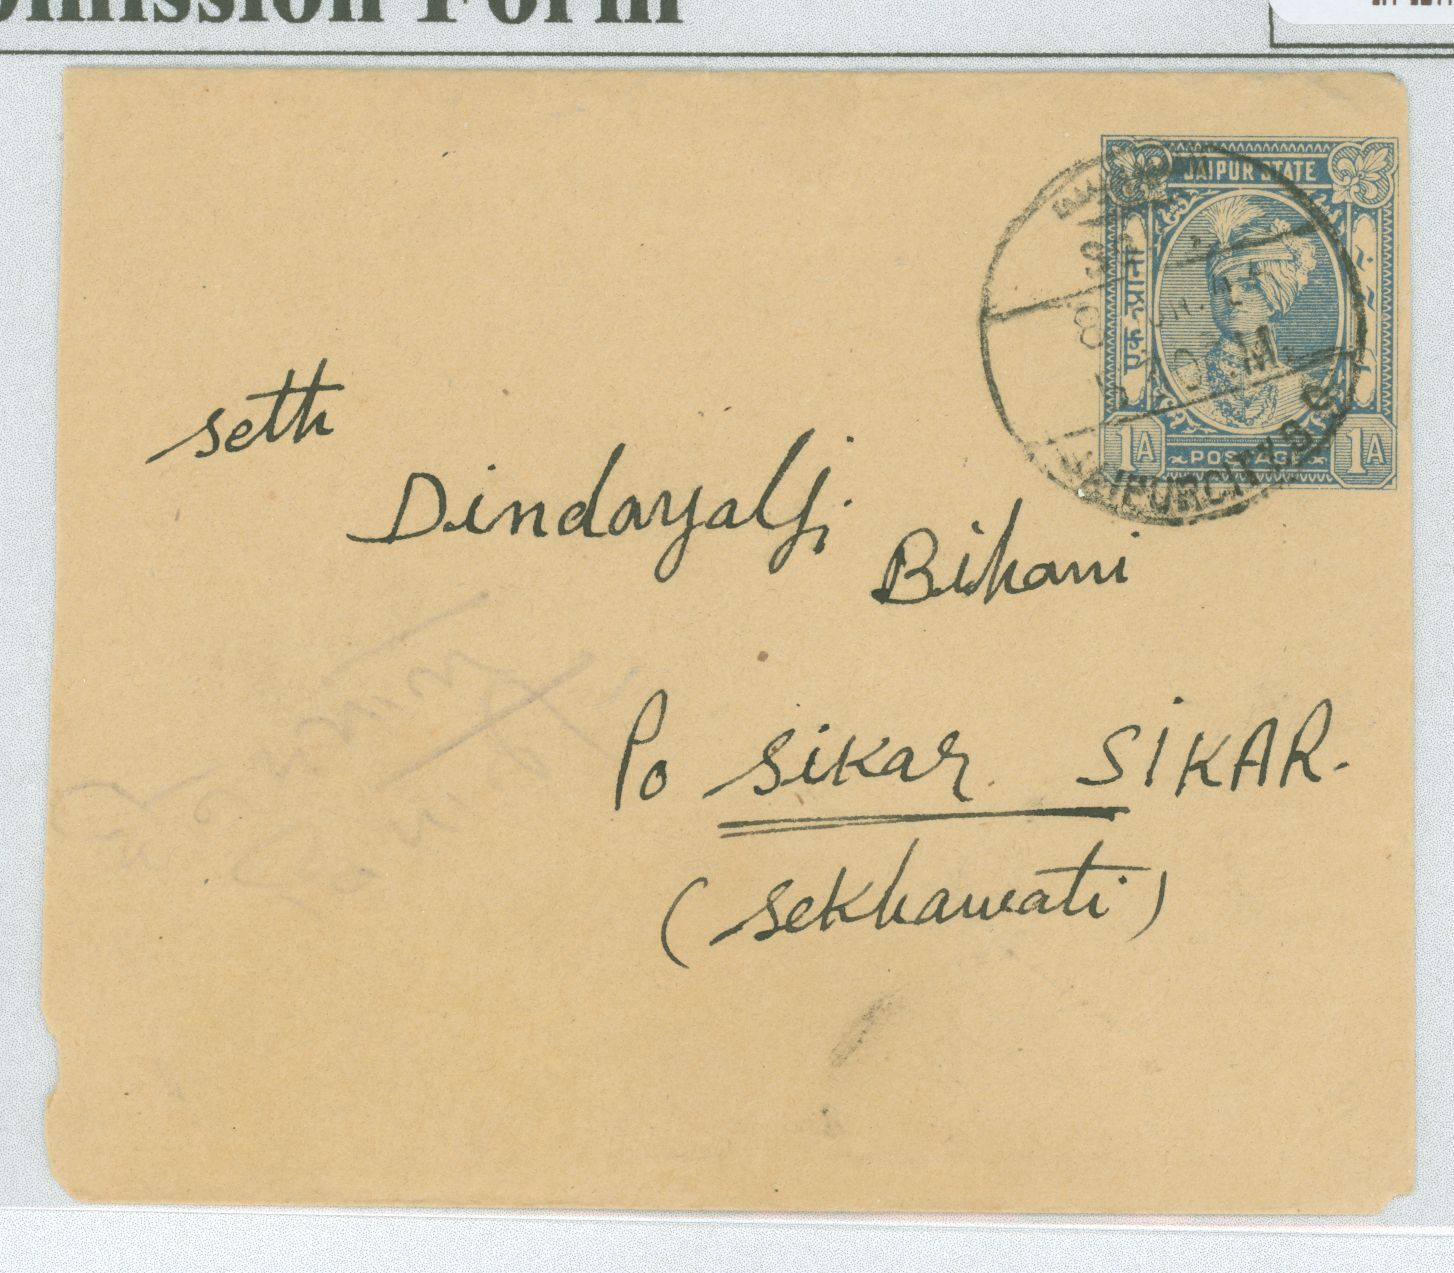 mission Form
JAIPUR STATE
एक आना
1A POSTAGE 1A
JAIPUR CITY D O
Seth
Dindayalji
Bihani
Po Sikar SIKAR.
(Sekhawati)